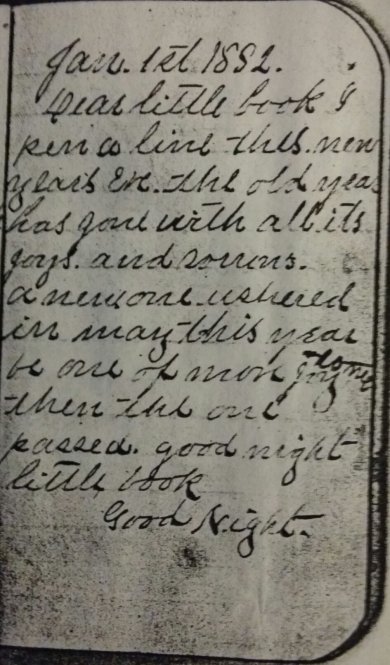 Jan. 1st 1892.
Dear little book I
pen a line this new
years Eve. the old year
has gone with all its
joys. and sorrows.
a new one ushered
in may this year
be one of more joy to me
then the one
passed. good night
little book
Good Night.